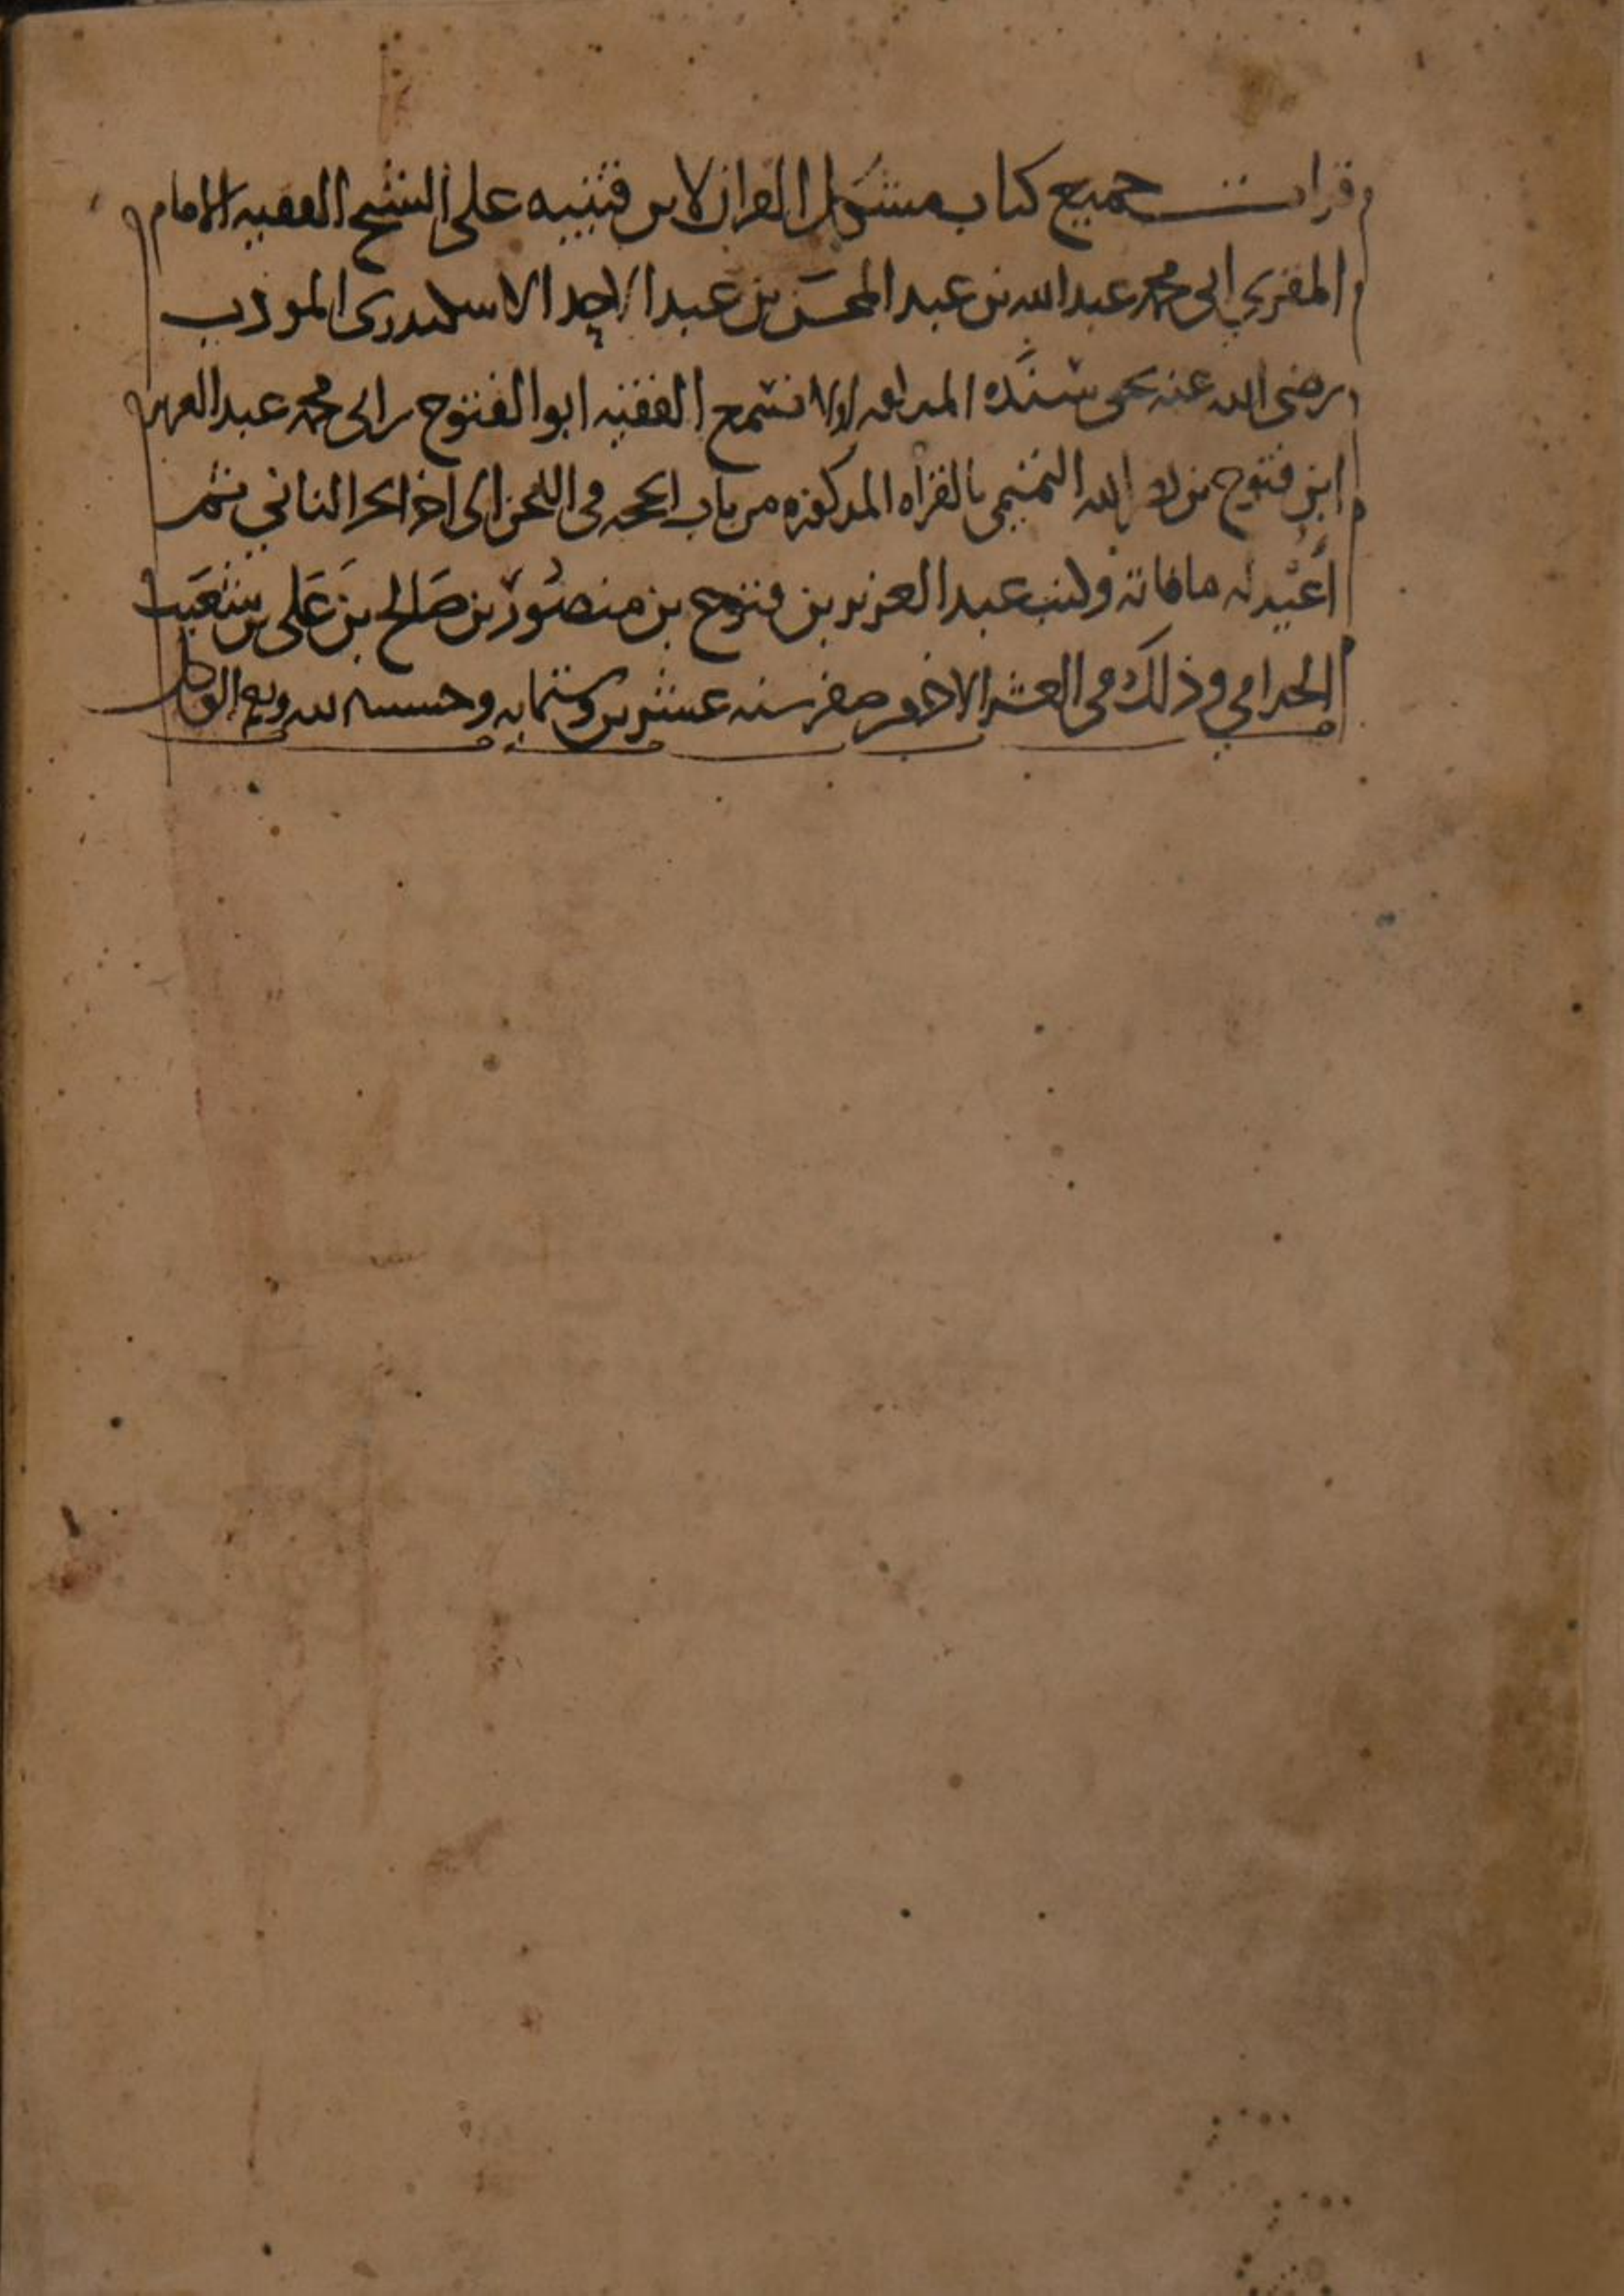 قرات جميع كتاب مشكل القران لابن قتيبه على الشيخ الفقيه الامام
المقري ابي محمد عبد الله بن عبد المحسن بن عبد الاحد الاسكندري المودب
رضي الله عنه بحق سنده اولا فسمع الفقيه ابو الفتوح بن ابي محمد عبد العزيز
ابن فتوح بن الله التميمي بالقراه المذكوره من باب الحجه في اللحن الى اخر الجز الثاني ثم
اعيد له ما فاته وكتب عبد العزيز بن فتوح بن منصور بن صالح بن علي بن شعيب
وذلك في العشر الاخر من صفر سنه عشرين وستمايه وحسبنا الله ونعم الوكيل